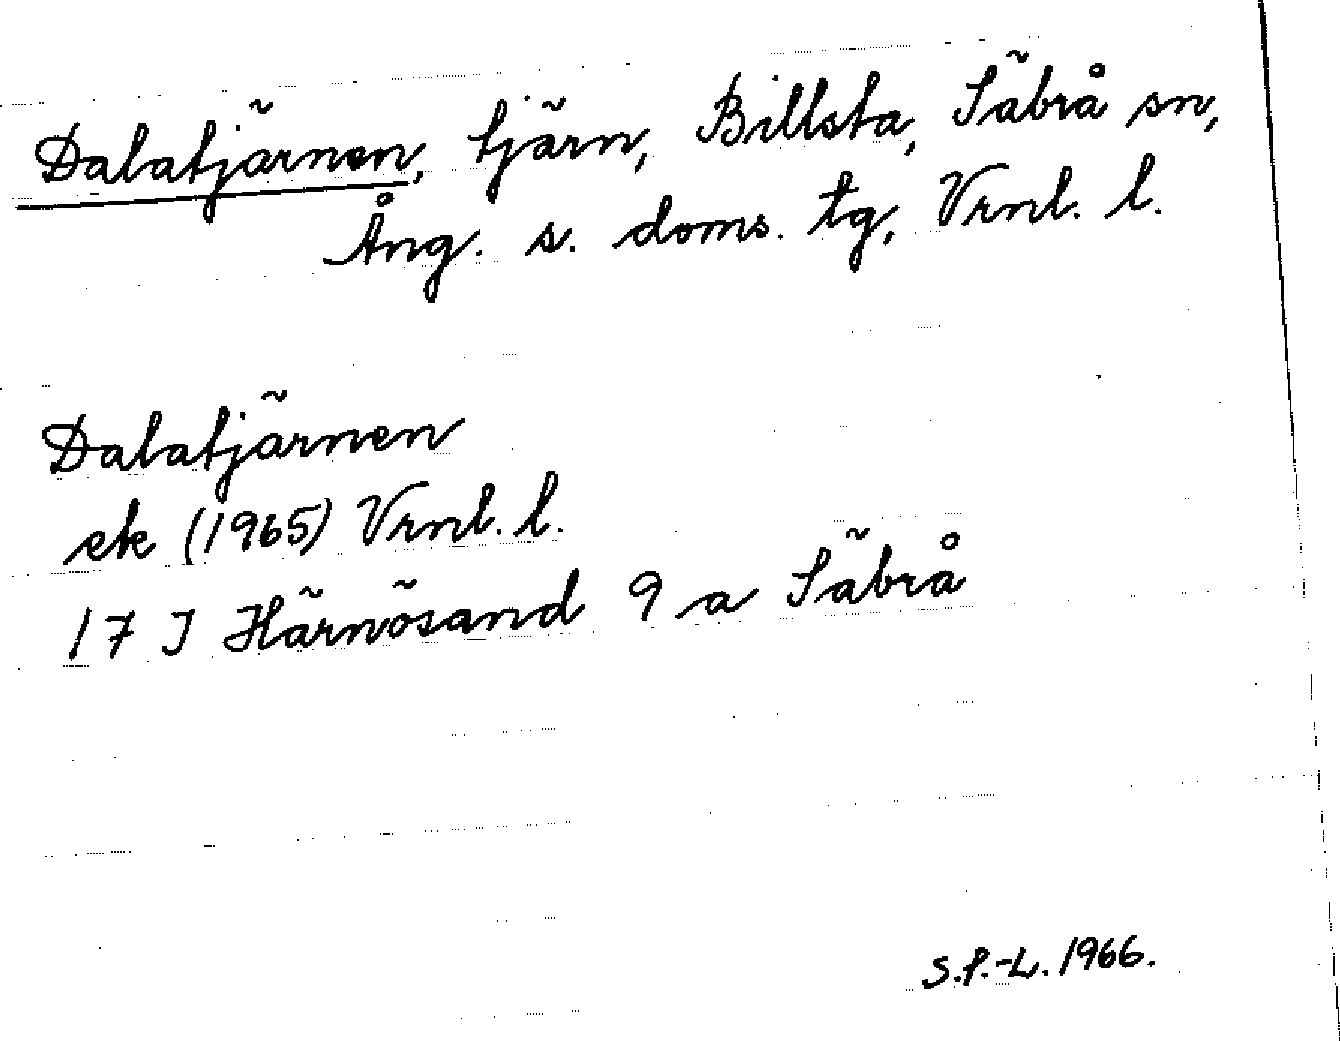 Dalatjärnen, tjärn, Billsta, Säbrå sn,
Ång. s. doms. tg, Vrnl. l.
Dalatjärnen
ek (1965) Vrnl. l.
17 J Härnösand 9 a Säbrå
S.P.-L. 1966.